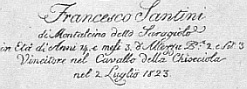 Francesco Santini
di Montalcino detto Saragiolo
in Età di Anni 14. e mesi 3. d'Altezza B.ª 2. e
Vincitore nel Cavallo della Chiocciola
nel 2. Luglio 1823.